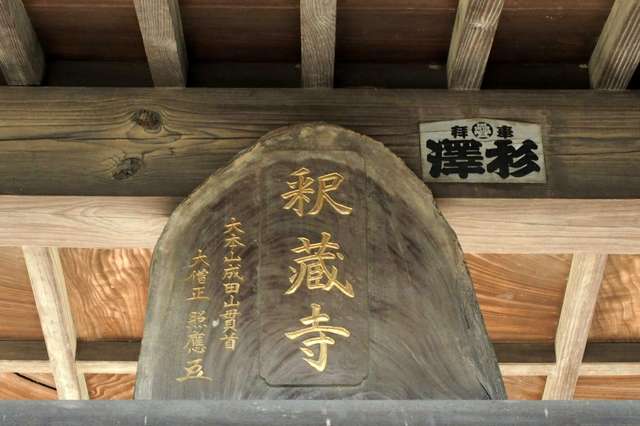 釈蔵寺
大本山成田山貫首
大僧正 照應
奉拜
杉澤